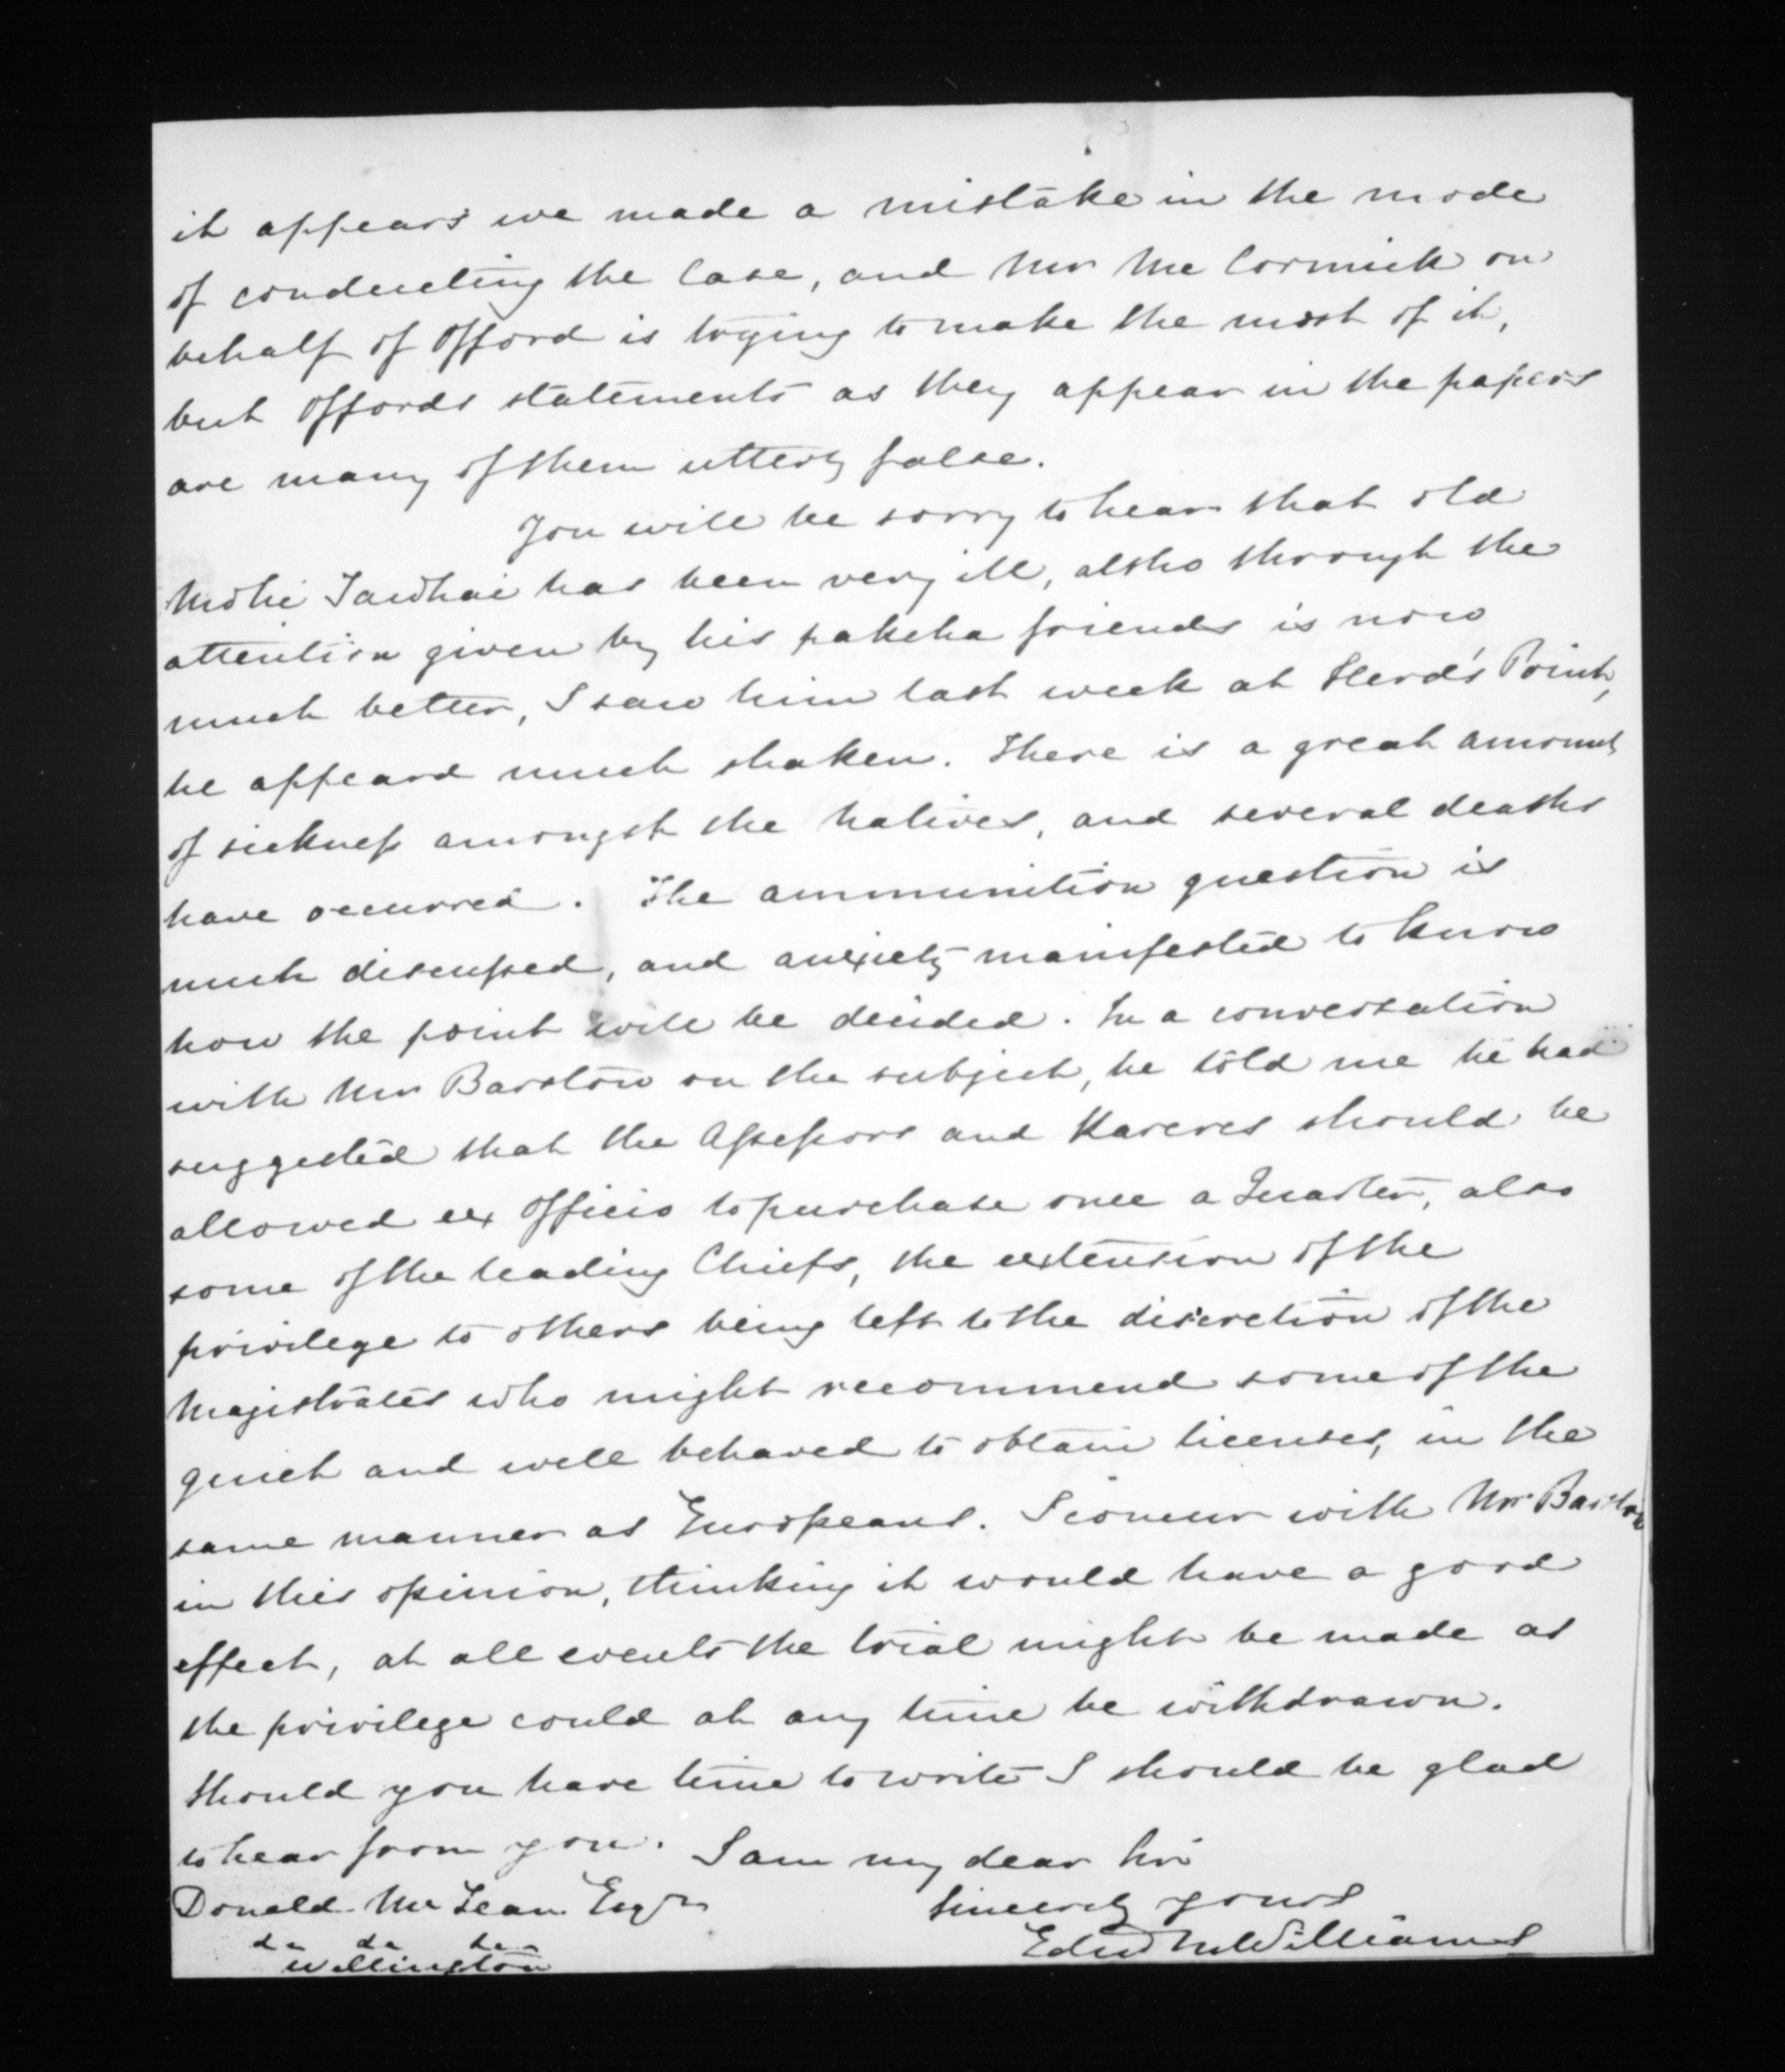 it appears we made a mistake in the mode
of conducting the Case, and Mr McCormick on
behalf of Offord is trying to make the most of it,
but Offords statements as they appear in the papers
are many of them utterly false.
You will be sorry to hear that old
Mohi Tawhai has been very ill, altho through the
attention given by his pakeha friends is now
much better, I saw him last week at Herd's Point,
he appeard much shaken. There is a great amount
of sickness amongst the Natives, and several deaths
have occurred. The ammunition question is
much discussed, and anxiety manifested to know
how the point will be decided. In a conversation
with Mr Barstow on the subject, he told me he had
suggested that the Assessors and Kareres should be
allowed ex Officio to purchase once a Quarter, also
some of the leading Chiefs, the extension of the
privilege to others being left to the discretion of the
Magistrates who might recommend some of the
quiet and well behaved to obtain licenses, in the
same manner as Europeans. I concur with Mr Barstow
in this opinion, thinking it would have a good
effect, at all events the trial might be made as
the privilege could at any time be withdrawn.
Should you have time to write I should be glad
to hear from you. I am my dear Sir
Donald McLean Esqr Sincerely yours
&c &c &c Edwd M Williams
Wellington